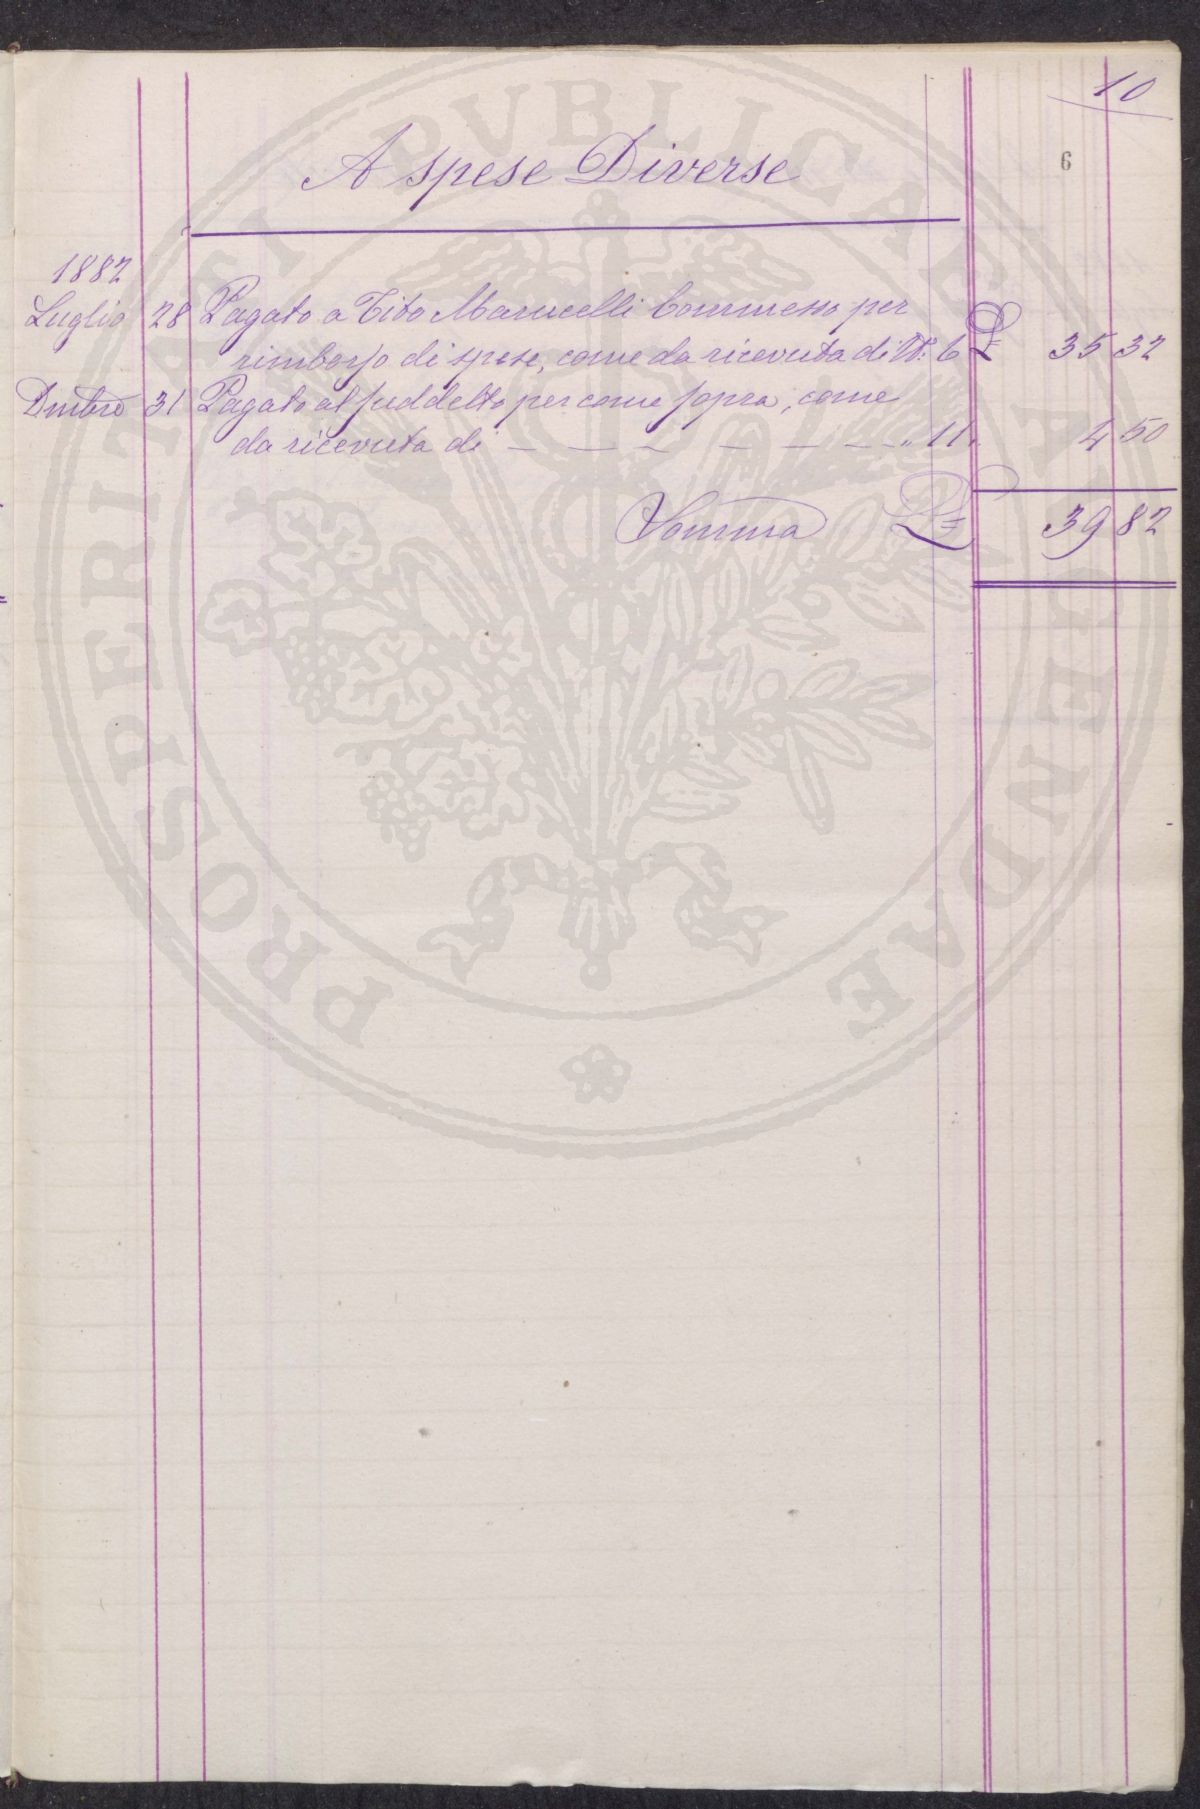 10
6
A spese Diverse
1882
Luglio 28 Pagato a Tito Marucelli Commesso per
rimborso di spese, come da ricevuta di N.º 6 £ 35 32
Dmbre 31 Pagato al suddetto per come sopra, come
da ricevuta di — — — — — — — " 11 " 4 50
Somma £ 39 82
PROSPERITATI PVBLICAE AVGENDAE